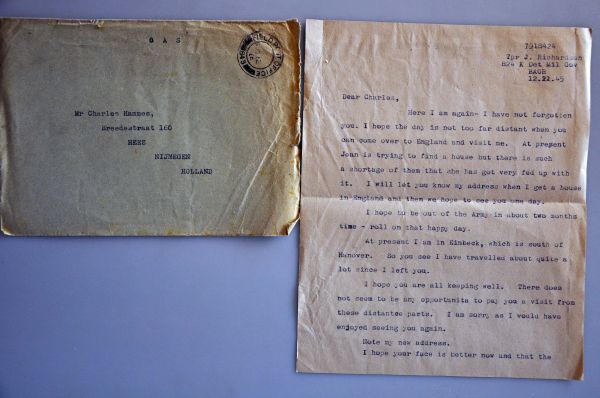 O A S
FIELD POST OFFICE
Mr Charles Hammes,
Breedestraat 160
HEES
NIJMEGEN
HOLLAND
7918424
Tpr J. Richardson
824 K Det Mil Gov
BAOR
12.22.45
Dear Charles,
Here I am again- I have not forgotten
you. I hope the day is not too far distant when you
can come over to England and visit me. At present
Joan is trying to find a house but there is such
a shortage of them that she has got very fed up with
it. I will let you know my address when I get a house
in England and then we hope to see you one day.
I hope to be out of the Army in about two months
time - roll on that happy day.
At present I am in Einbeck, which is south of
Hanover. So you see I have travelled about quite a
lot since I left you.
I hope you are all keeping well. There does
not seem to be any opportunite to pay you a visit from
these distantce parts. I am sorry as I would have
enjoyed seeing you again.
Note my new address.
I hope your face is better now and that the